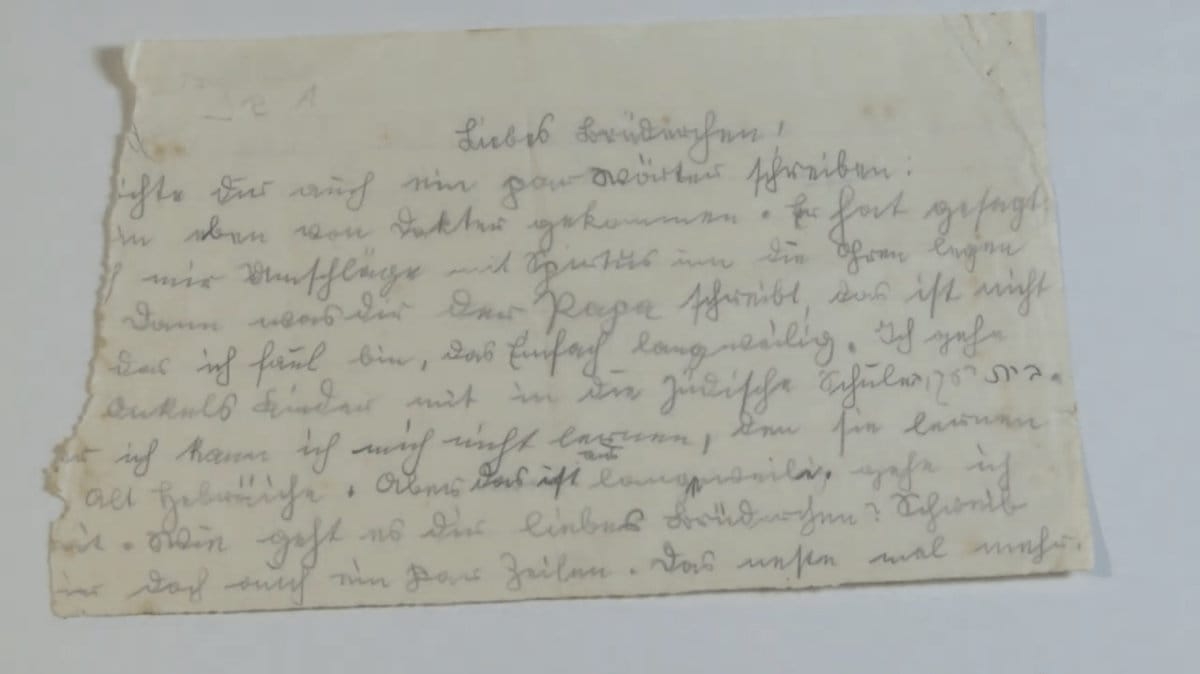 Liebes Brüderchen!
ichte dir auch ein par Wörter schreiben:
in eben von Dokter gekommen. Er hat gesagt
mir Umschläge mit Spirtus um die Ohren legen
Dann was dir der Papa schreibt, das ist nicht
das ich faul bin, das Einfach langweilig. Ich gehe
Onkels Kinder mit in die Jüdische Schule,
er ich kann ich mich nicht lernen, den sie lernen
Alt Hebräiche. Aber das ist langeweili. gehe ich
it. Wie geht es dir liebes Brüderchen? Schreib
ir doch auch ein par Zeilen. Das neste mal mehr.